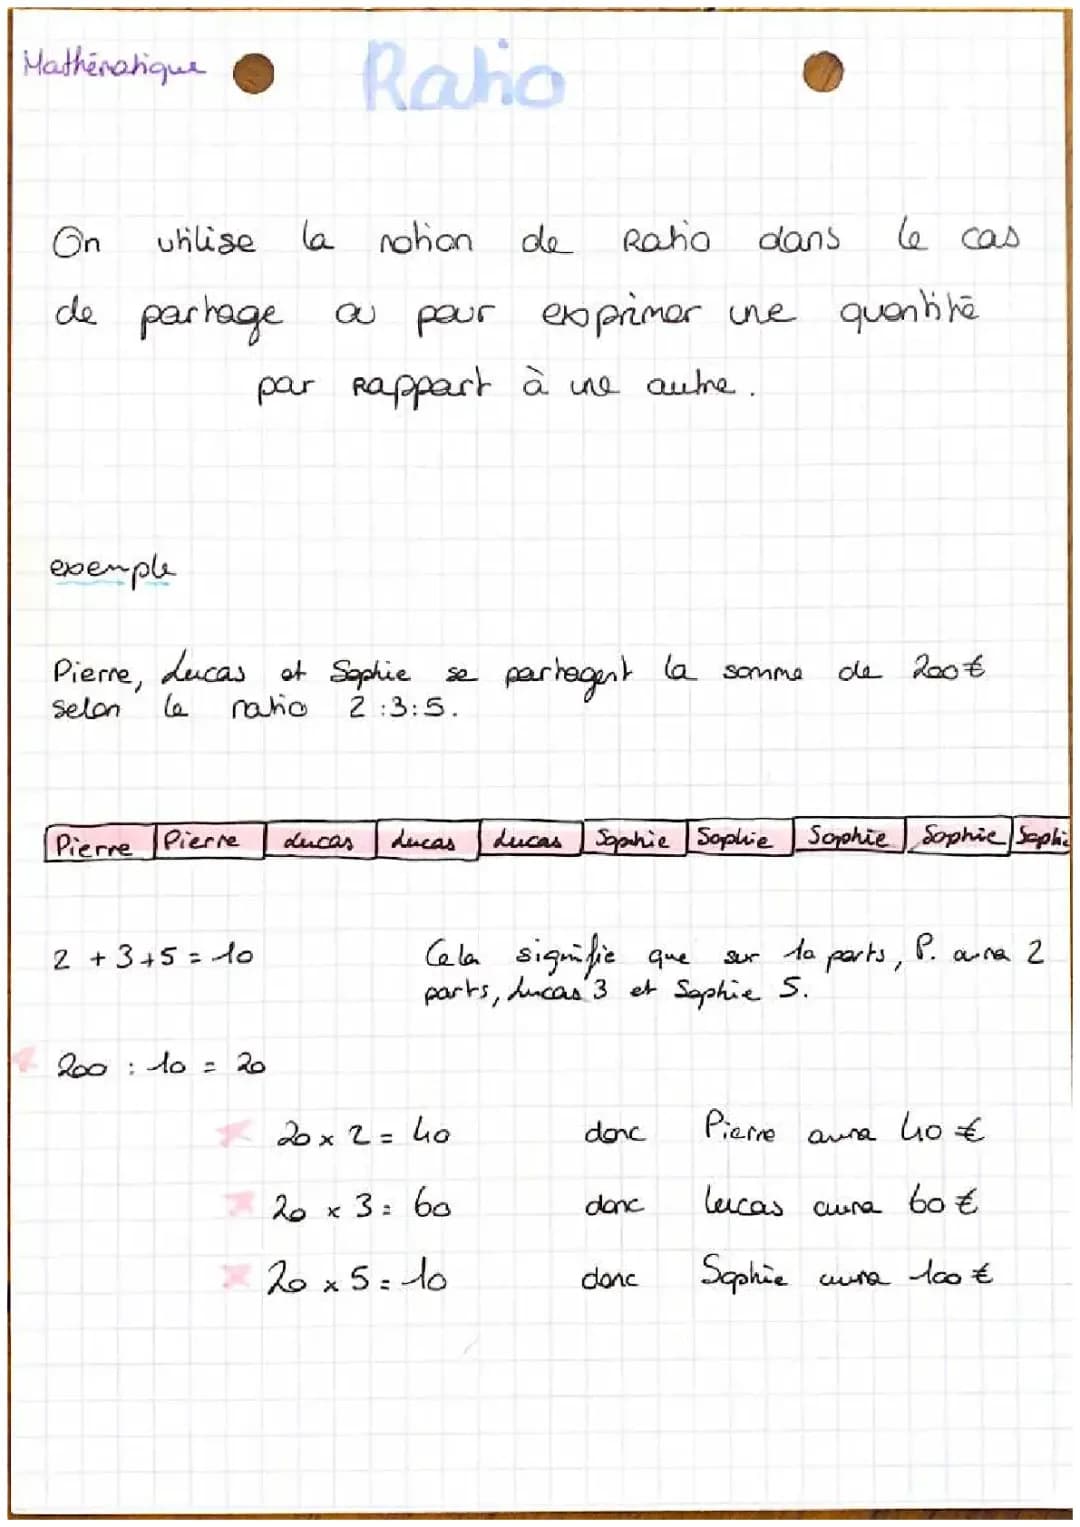 Mathématique
Ratio
On utilise la notion de Ratio dans le cas
de partage ou pour exprimer une quantité
par Rapport à une autre.
exemple
Pierre, Lucas et Sophie se partagent la somme de 200€
selon le ratio 2:3:5.
Pierre Pierre Lucas Lucas Lucas Sophie Sophie Sophie Sophie Sophie
2+3+5=10
Cela signifie que sur 10 parts, P. aura 2
parts, Lucas 3 et Sophie 5.
200 : 10 = 20
20 x 2 = 40 donc Pierre aura 40 €
20 x 3 = 60 donc Lucas aura 60 €
20 x 5 = 10 donc Sophie aura 100 €